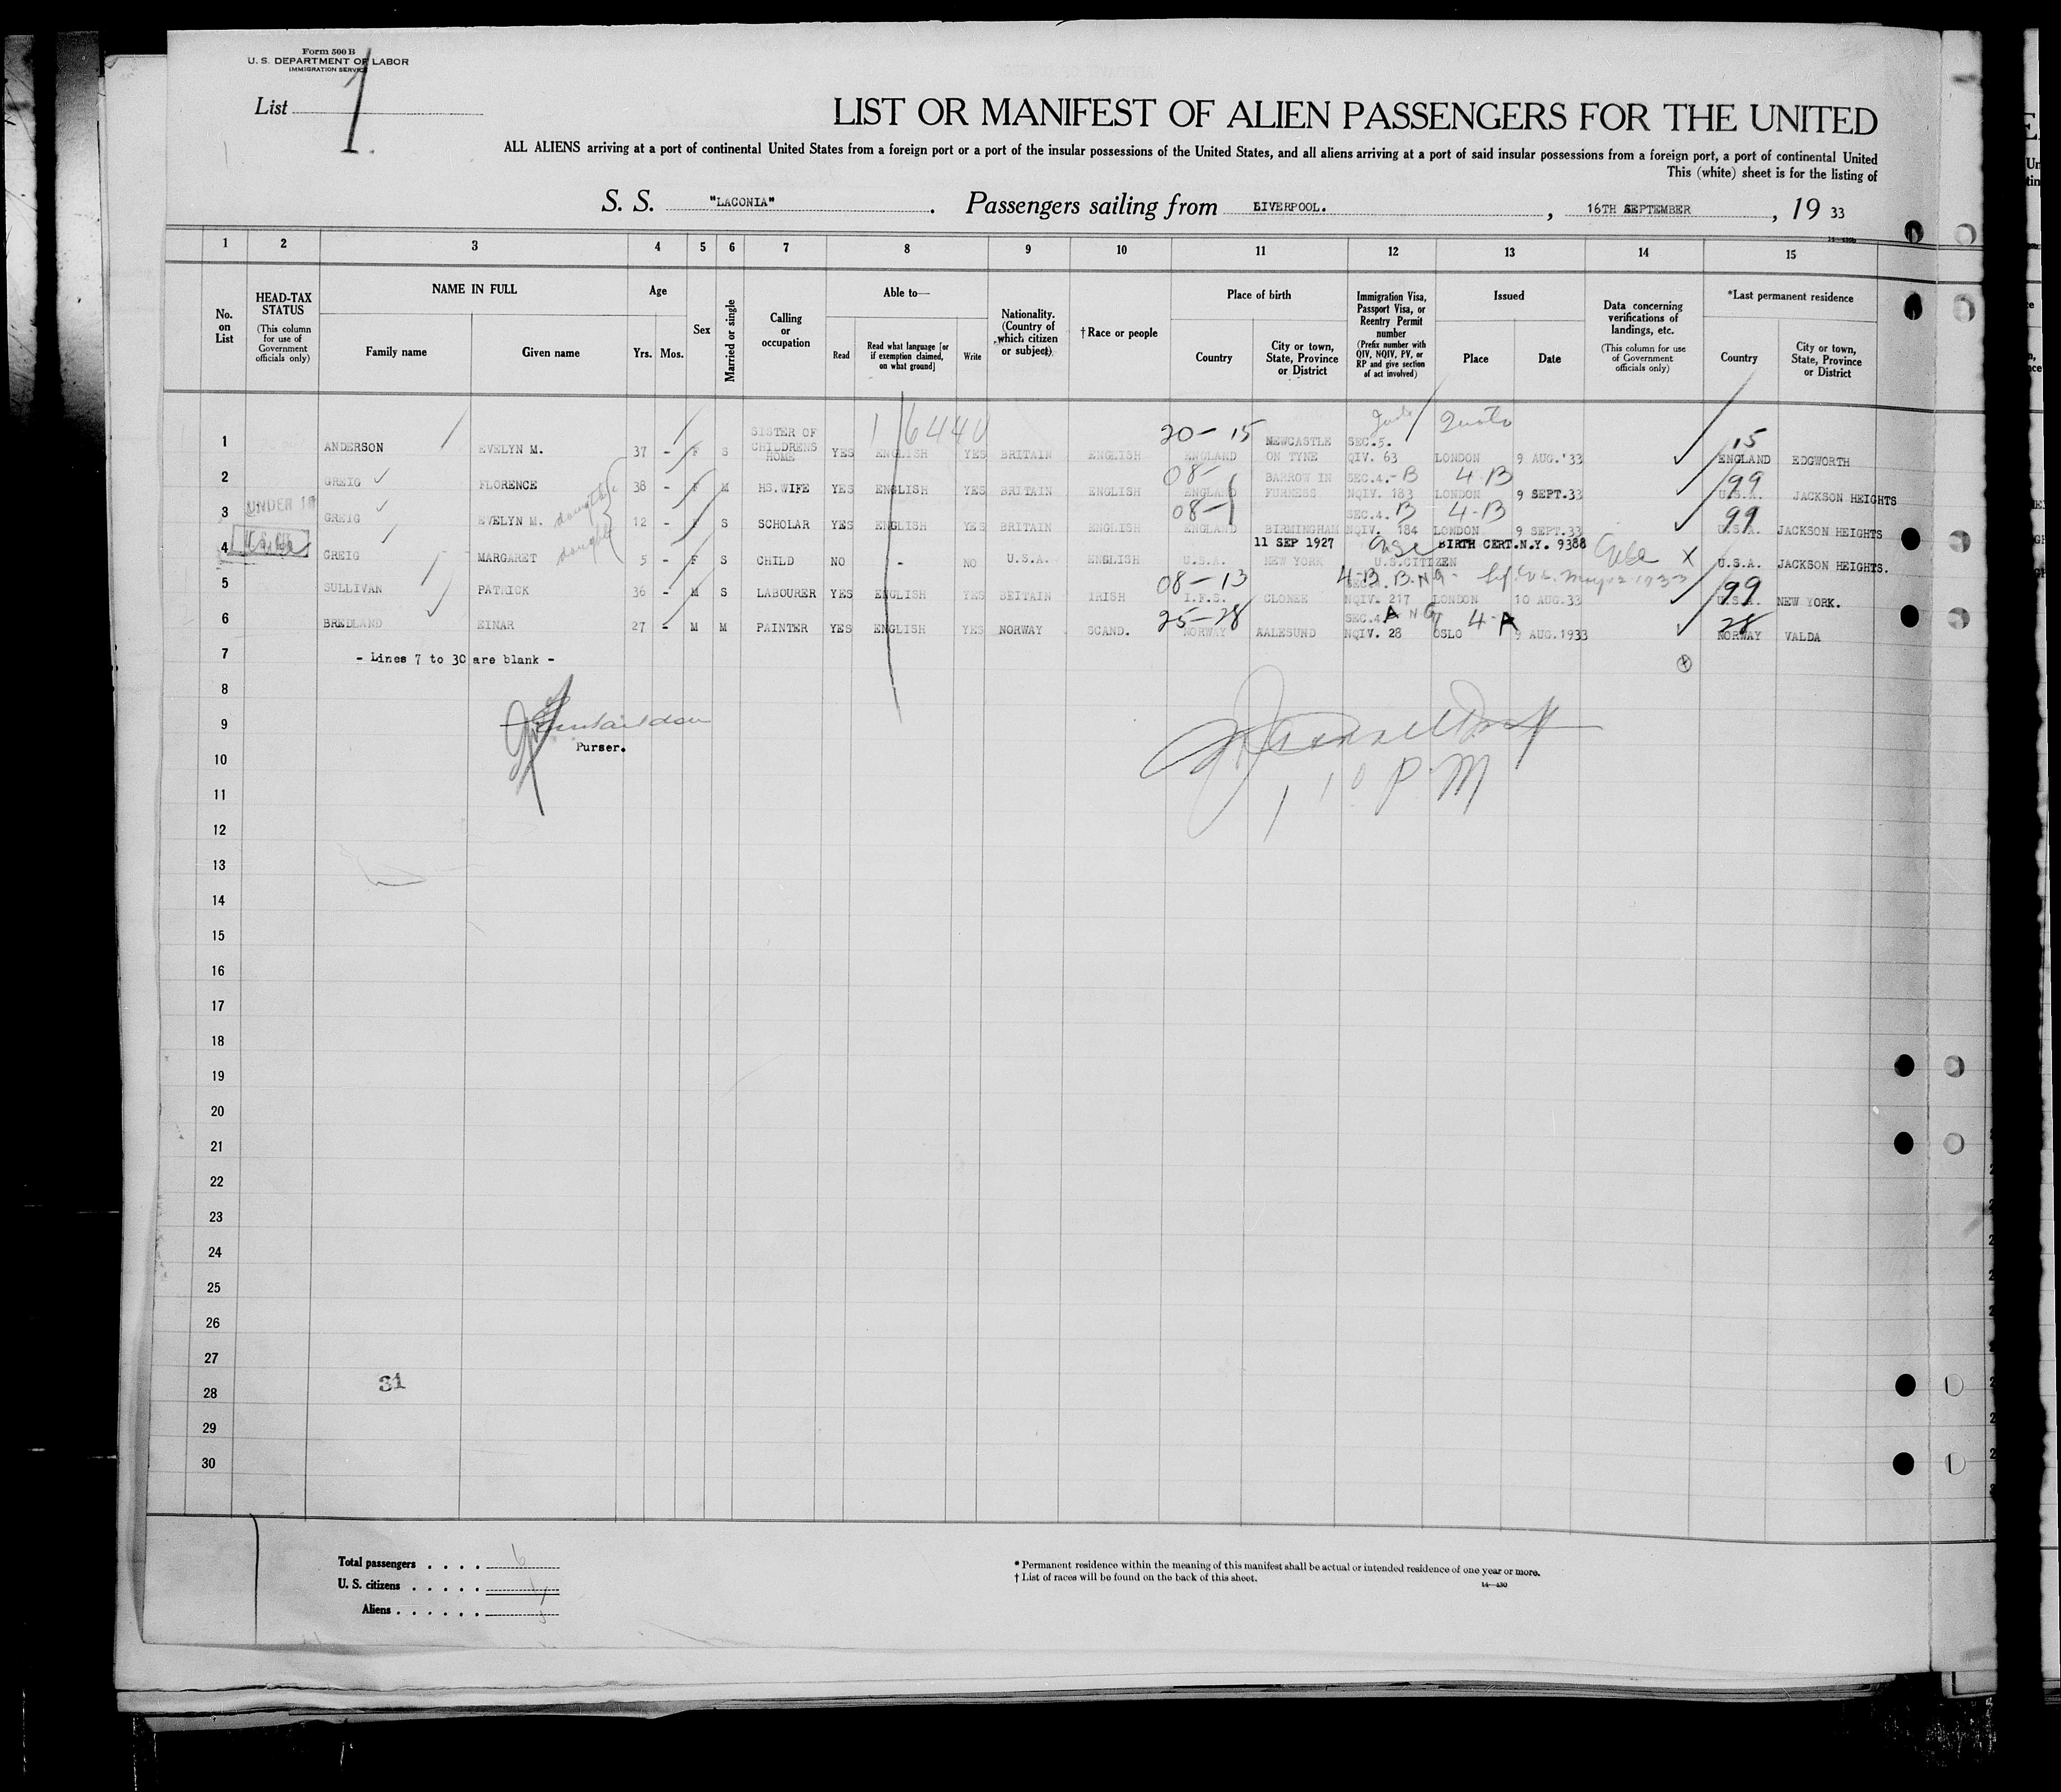 Form 500 B
U. S. DEPARTMENT OF LABOR
IMMIGRATION SERVICE
List 1
LIST OR MANIFEST OF ALIEN PASSENGERS FOR THE UNITED
ALL ALIENS arriving at a port of continental United States from a foreign port or a port of the insular possessions of the United States, and all aliens arriving at a port of said insular possessions from a foreign port, a port of continental United
This (white) sheet is for the listing of
S. S. "LACONIA". Passengers sailing from LIVERPOOL. , 16TH SEPTEMBER , 19 33
1 2 3 4 5 6 7 8 9 10 11 12 13 14 15
No. on List
HEAD-TAX STATUS
(This column for use of Government officials only)
NAME IN FULL
Family name Given name
Age
Yrs. Mos.
Sex
Married or single
Calling or occupation
Able to—
Read Read what language [or if exemption claimed, on what ground] Write
Nationality. (Country of which citizen or subject)
†Race or people
Place of birth
Country City or town, State, Province or District
Immigration Visa, Passport Visa, or Reentry Permit number
(Prefix number with QIV, NQIV, PV, or RP and give section of act involved)
Issued
Place Date
Data concerning verifications of landings, etc.
(This column for use of Government officials only)
*Last permanent residence
Country City or town, State, Province or District
20-15 Quota 15
1 ANDERSON EVELYN M. 37 - F S SISTER OF CHILDRENS HOME YES ENGLISH YES BRITAIN ENGLISH ENGLAND NEWCASTLE ON TYNE SEC.5. QIV. 63 LONDON 9 AUG.'33 ENGLAND EDGWORTH
08- B 4-B 99
2 GREIG FLORENCE 38 - F M HS.WIFE YES ENGLISH YES BRITAIN ENGLISH ENGLAND BARROW IN FURNESS SEC.4.- NQIV. 183 LONDON 9 SEPT.33 U.S.A. JACKSON HEIGHTS
UNDER 16 daughter 08- B 4-B 99
3 GREIG EVELYN M. 12 - F S SCHOLAR YES ENGLISH YES BRITAIN ENGLISH ENGLAND BIRMINGHAM SEC.4. NQIV. 184 LONDON 9 SEPT.33 U.S.A. JACKSON HEIGHTS
11 SEP 1927 BIRTH CERT.N.Y. 9388
4 GREIG MARGARET 5 - F S CHILD NO - NO U.S.A. ENGLISH U.S.A. NEW YORK U.S.CITIZEN X U.S.A. JACKSON HEIGHTS.
08-13 4-B 99
5 SULLIVAN PATRICK 36 - M S LABOURER YES ENGLISH YES BRITAIN IRISH I.F.S. CLONEE NQIV. 217 LONDON 10 AUG.33 U.S.A. NEW YORK.
25-28 A 4-A 28
6 BREDLAND EINAR 27 - M M PAINTER YES ENGLISH YES NORWAY SCAND. NORWAY AALESUND SEC.4. NQIV. 28 OSLO 9 AUG.1933 NORWAY VALDA
7 - Lines 7 to 30 are blank -
8
9
Purser.
10
1 10 P.M
11
12
13
14
15
16
17
18
19
20
21
22
23
24
25
26
27
31
28
29
30
Total passengers . . . . 6
U. S. citizens . . . . . 1
Aliens . . . . . . 5
* Permanent residence within the meaning of this manifest shall be actual or intended residence of one year or more.
† List of races will be found on the back of this sheet.
14—430